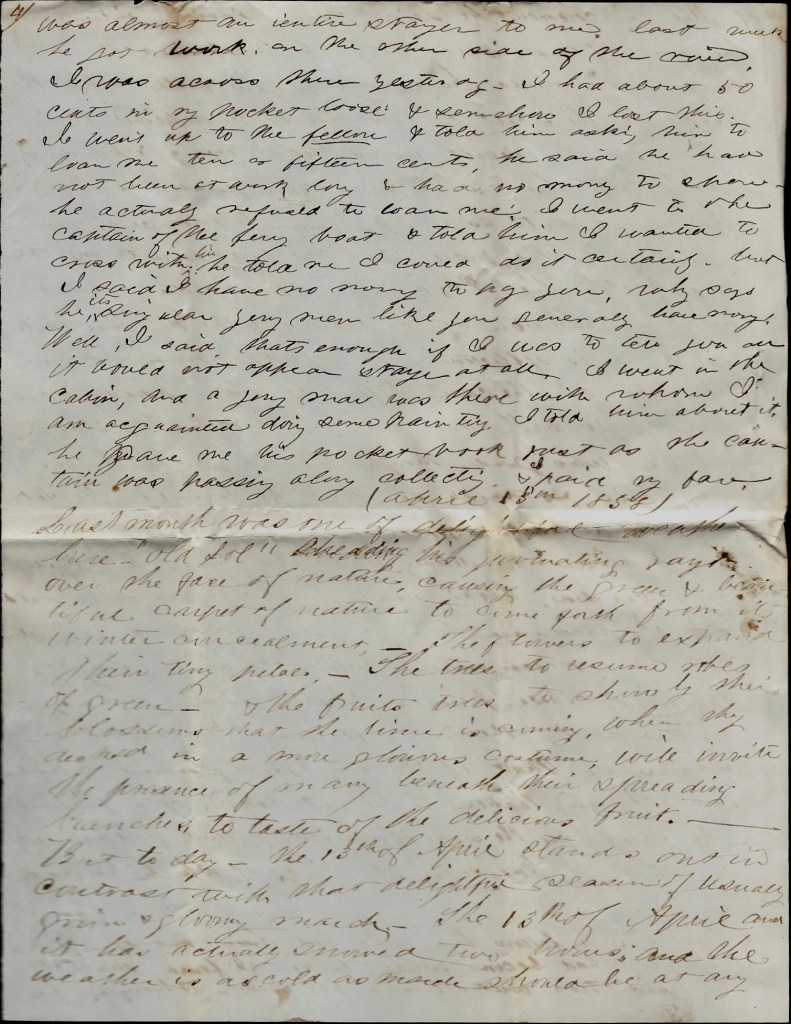 4)
was almost an entire stayer to me. last week
he got work. on the other side of the river,
I was across there yesterday - I had about 50
cents in my pocket loose & somehow I lost this.
I went up to the fellow & told him asking him to
loan me ten or fifteen cents, he said he had
not been at work long & had no money to spare -
he actualy refused to loan me! I went to the
captain of the fery boat & told him I wanted to
cross with him he told me I could do it certainly. but
I said I have no mony to pay you, why says
he, its singular yong men like you generaly have mony.
Well, I said thats enough if I was to tell you all
it would not appear stage at all, I went in the
cabin, and a yong man was there with whom I
am acquainted doing some painting I told him about it,
he gave me his pocket book just as the cap-
tain was passing along collecting. & I paid my fare.
(April 13th 1858)
Last month was one of delightful weather
here - "old Sol" shedding his rays
over the face of nature, causing the green & beau-
tiful carpet of nature to come forth from its
winter concealment, - The flowers to expand
their tiny petals, - The trees to resume robes
of green - & the fruits trees to show by their
blossoms that the time is coming, when they
decked in a more glorious costume, will invite
the presence of many beneath their spreading
branches, to taste of the delicious fruit. -
But to day - the 13th of April stands out in
contrast with that delightful season of usualy
grim & gloomy march - The 13th of April and
it has actually snowed two hours; and the
weather is as cold as march should be at any